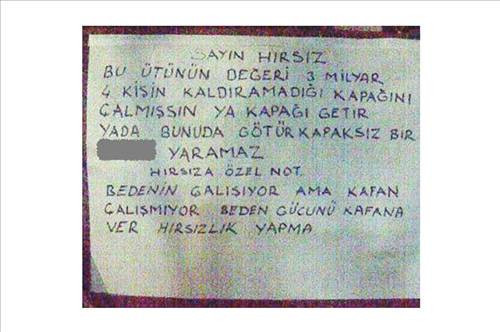 SAYIN HIRSIZ
BU ÜTÜNÜN DEĞERİ 3 MİLYAR
4 KİŞİN KALDIRAMADIĞI KAPAĞINI
ÇALMIŞSIN YA KAPAĞI GETİR
YADA BUNUDA GÖTÜR KAPAKSIZ BİR
YARAMAZ
HIRSIZA ÖZEL NOT.
BEDENİN ÇALIŞIYOR AMA KAFAN
ÇALIŞMIYOR BEDEN GÜCÜNÜ KAFANA
VER HIRSIZLIK YAPMA